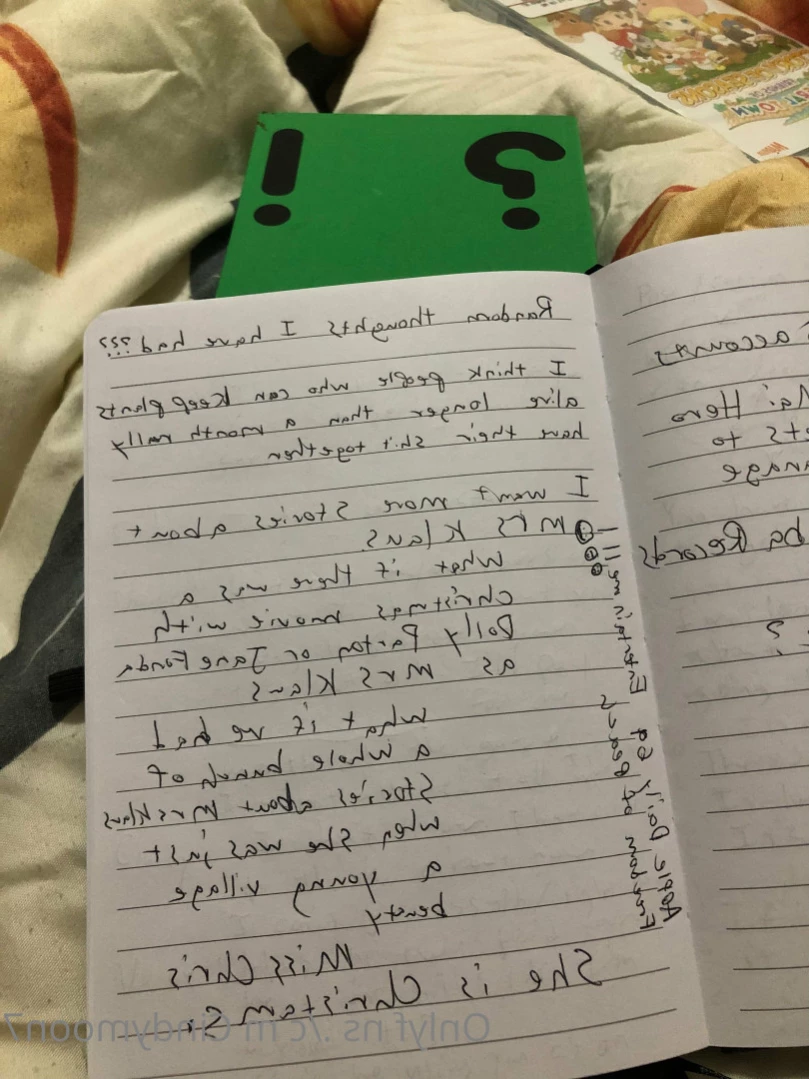 ? !
Random thoughts I have had ???
I think people who can keep plants
alive longer than a month really
have their Shit together
I want more Stories about
Mrs Klaus
What if there was a
Christmas movie with
Dolly Parton or Jane Fonda
as Mrs Klaus
what if we had
a whole bunch of
Stories about Mrs Klaus
when She was just
a young village
beauty
Miss Chris
She is
Apple Daily
Freedom of
accounts
Hero
ts to
Records
?
Onlyfns ./c m Cindymoon7